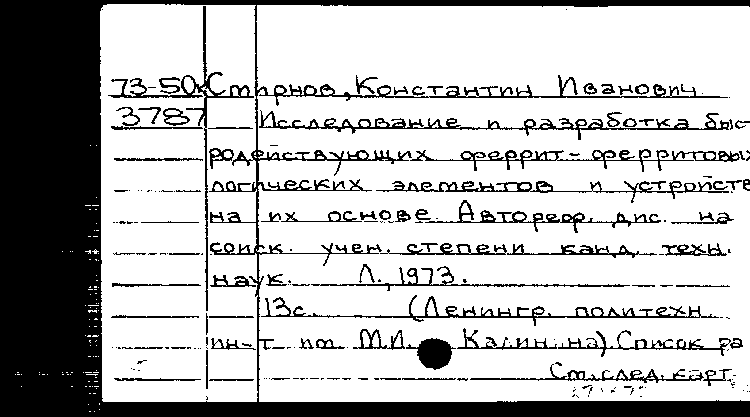 73-50к Смирнов, Константин Иванович
3787 Исследование и разработка быст
родействующих феррит-ферритовых
логических элементов и устройств
на их основе. Автореф. дис. на
соиск. учен. степени канд. техн.
наук. Л., 1973.
13с. (Ленингр. политехн.
ин-т им. М.И. Калинина). Список ра
См. след. карт.